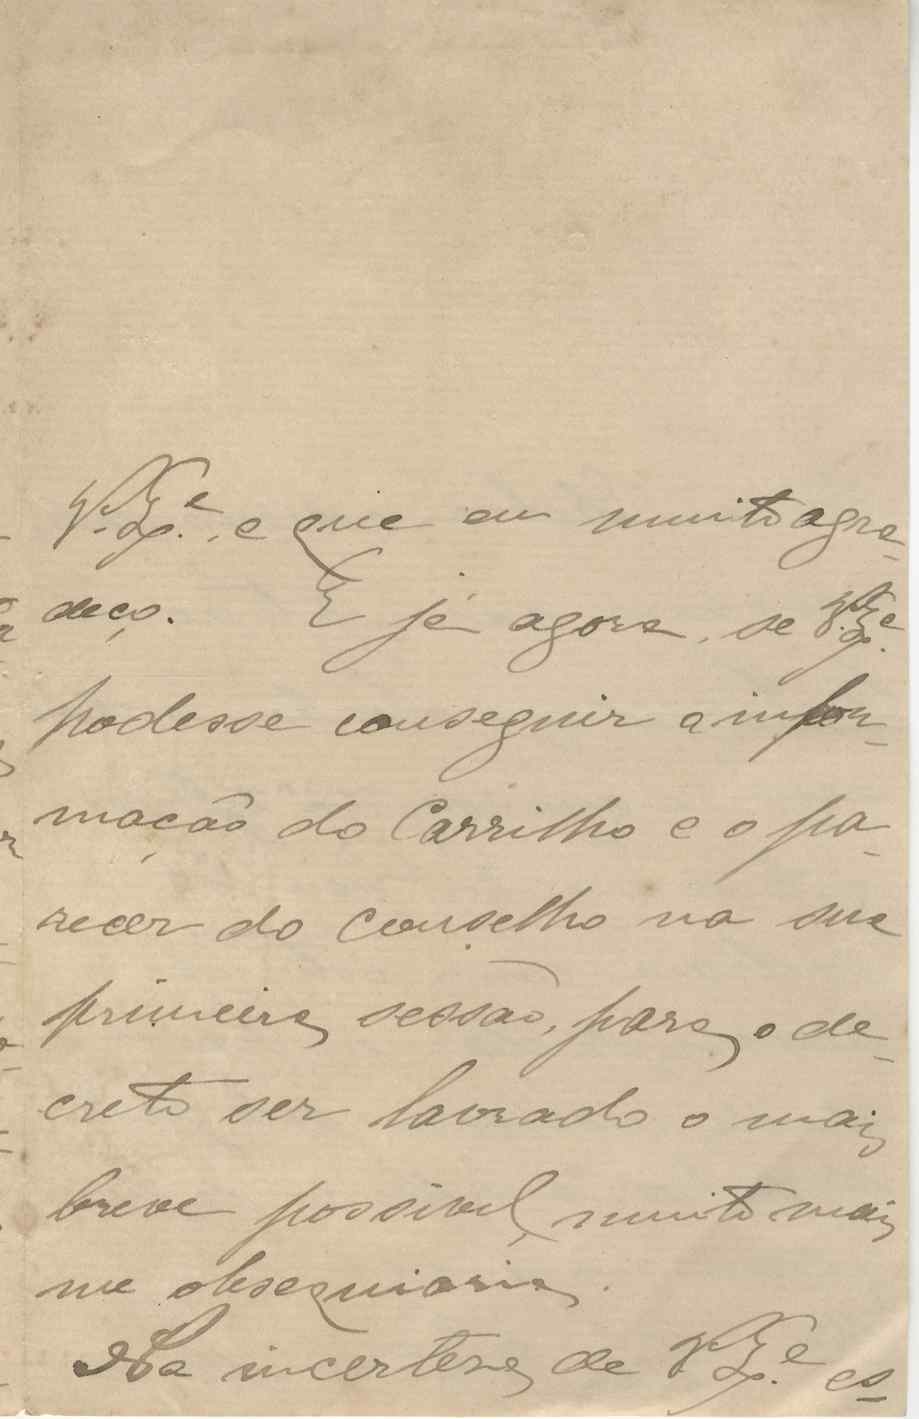 V. Ex.ª, e que eu muito agra-
deço. E já agora, se V. Ex.ª
podesse conseguir a infor-
mação do Carrilho e o pa-
recer do conselho na sua
primeira sessão, para o de-
creto ser lavrado o mais
breve possivel, muito mais
me obsequiaria.
Na incerteza de V. Ex.ª es-